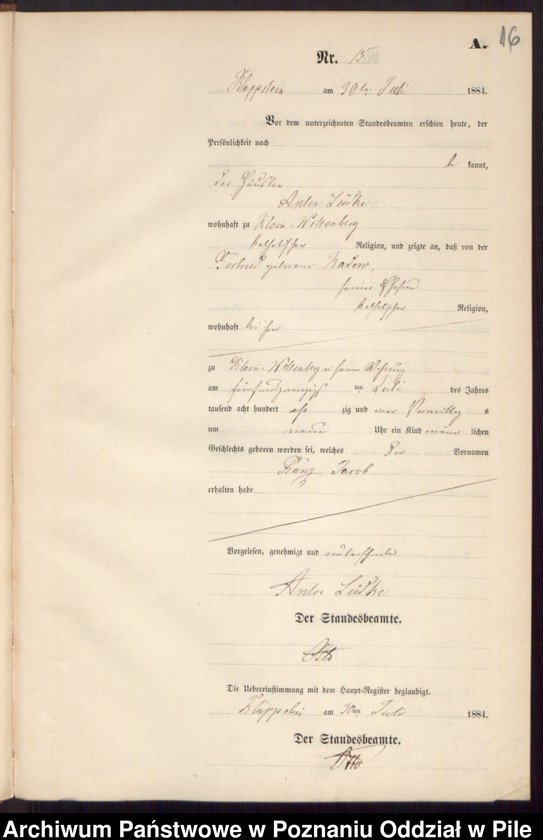 16
A.
Nr. 15
Klappstein am 30ten Juli 1884.
Vor dem unterzeichneten Standesbeamten erschien heute, der
Persönlichkeit nach
be kannt,
der Häusler
Anton Lüdke
wohnhaft zu Klein-Wittenberg
katholischer Religion, und zeigte an, daß von der
Gertrud geborene Radow,
seiner Ehefrau
katholischer Religion,
wohnhaft bei ihm
zu Klein-Wittenberg in seiner Wohnung
am fünfundzwanzigsten Juli des Jahres
tausend acht hundert acht zig und vier Vormittags
um neun Uhr ein Kind männ lichen
Geschlechts geboren worden sei, welches die Vornamen
Franz Jacob
erhalten habe
Vorgelesen, genehmigt und unterschrieben
Anton Lüdke
Der Standesbeamte.
Otto
Die Uebereinstimmung mit dem Haupt-Register beglaubigt.
Klappstein am 30ten Juli 1884.
Der Standesbeamte.
Otto
Archiwum Państwowe w Poznaniu Oddział w Pile